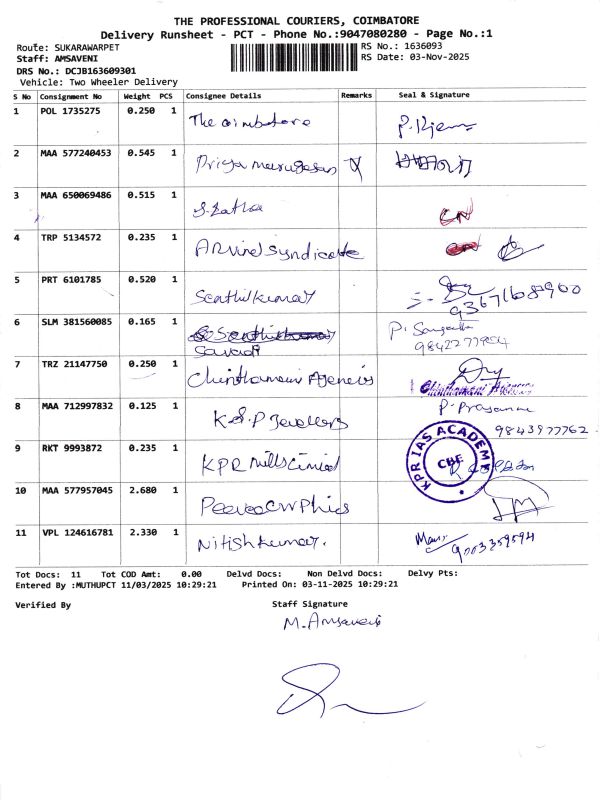 THE PROFESSIONAL COURIERS, COIMBATORE
Delivery Runsheet - PCT - Phone No.:9047080280 - Page No.:1
Route: SUKARAWARPET
RS No.: 1636093
Staff: AMSAVENI
RS Date: 03-Nov-2025
DRS No.: DCJB163609301
Vehicle: Two Wheeler Delivery
S No Consignment No Weight PCS Consignee Details Remarks Seal & Signature
1 POL 1735275 0.250 1 The Coimbatore
2 MAA 577240453 0.545 1 Priya murugesan
3 MAA 650069486 0.515 1 CN
4 TRP 5134572 0.235 1 Arvind syndicate
5 PRT 6101785 0.520 1 Senthilkumar
9367168900
6 SLM 381560085 0.165 1 Senthilkumar P.
7 TRZ 21147750 0.250 1 Chinthamani Agencies Chinthamani Agencies
8 MAA 712997832 0.125 1 K.S.P Jewellers P. Prasanna
9843977762
9 RKT 9993872 0.235 1 KPR Mills Limited KPR IAS ACADEME CBE
10 MAA 577957045 2.680 1
11 VPL 124616781 2.330 1 Nitishkumar. 9003359594
Tot Docs: 11 Tot COD Amt: 0.00 Delvd Docs: Non Delvd Docs: Delvy Pts:
Entered By :MUTHUPCT 11/03/2025 10:29:21 Printed On: 03-11-2025 10:29:21
Verified By Staff Signature
M. Amsaveni